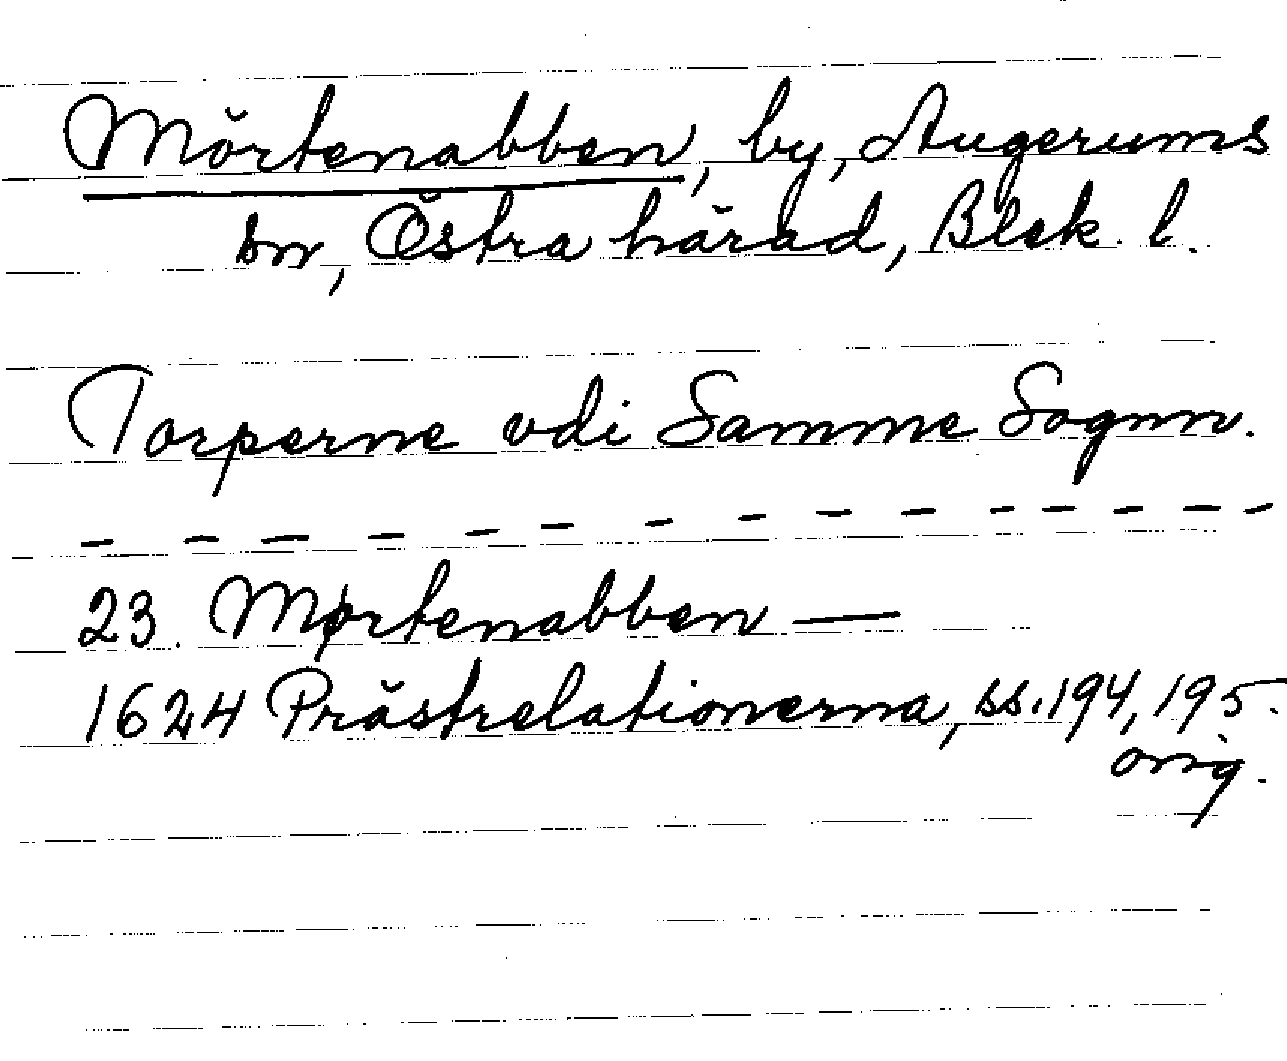 Mörtenabben, by, Augerums
sn, Östra härad, Blek. l.
Torperne vdi Samme Sognn.
- - - - - - - - - - - - - -
23. Mørtenabben —
1624 Prästrelationerna, ss. 194, 195.
orig.